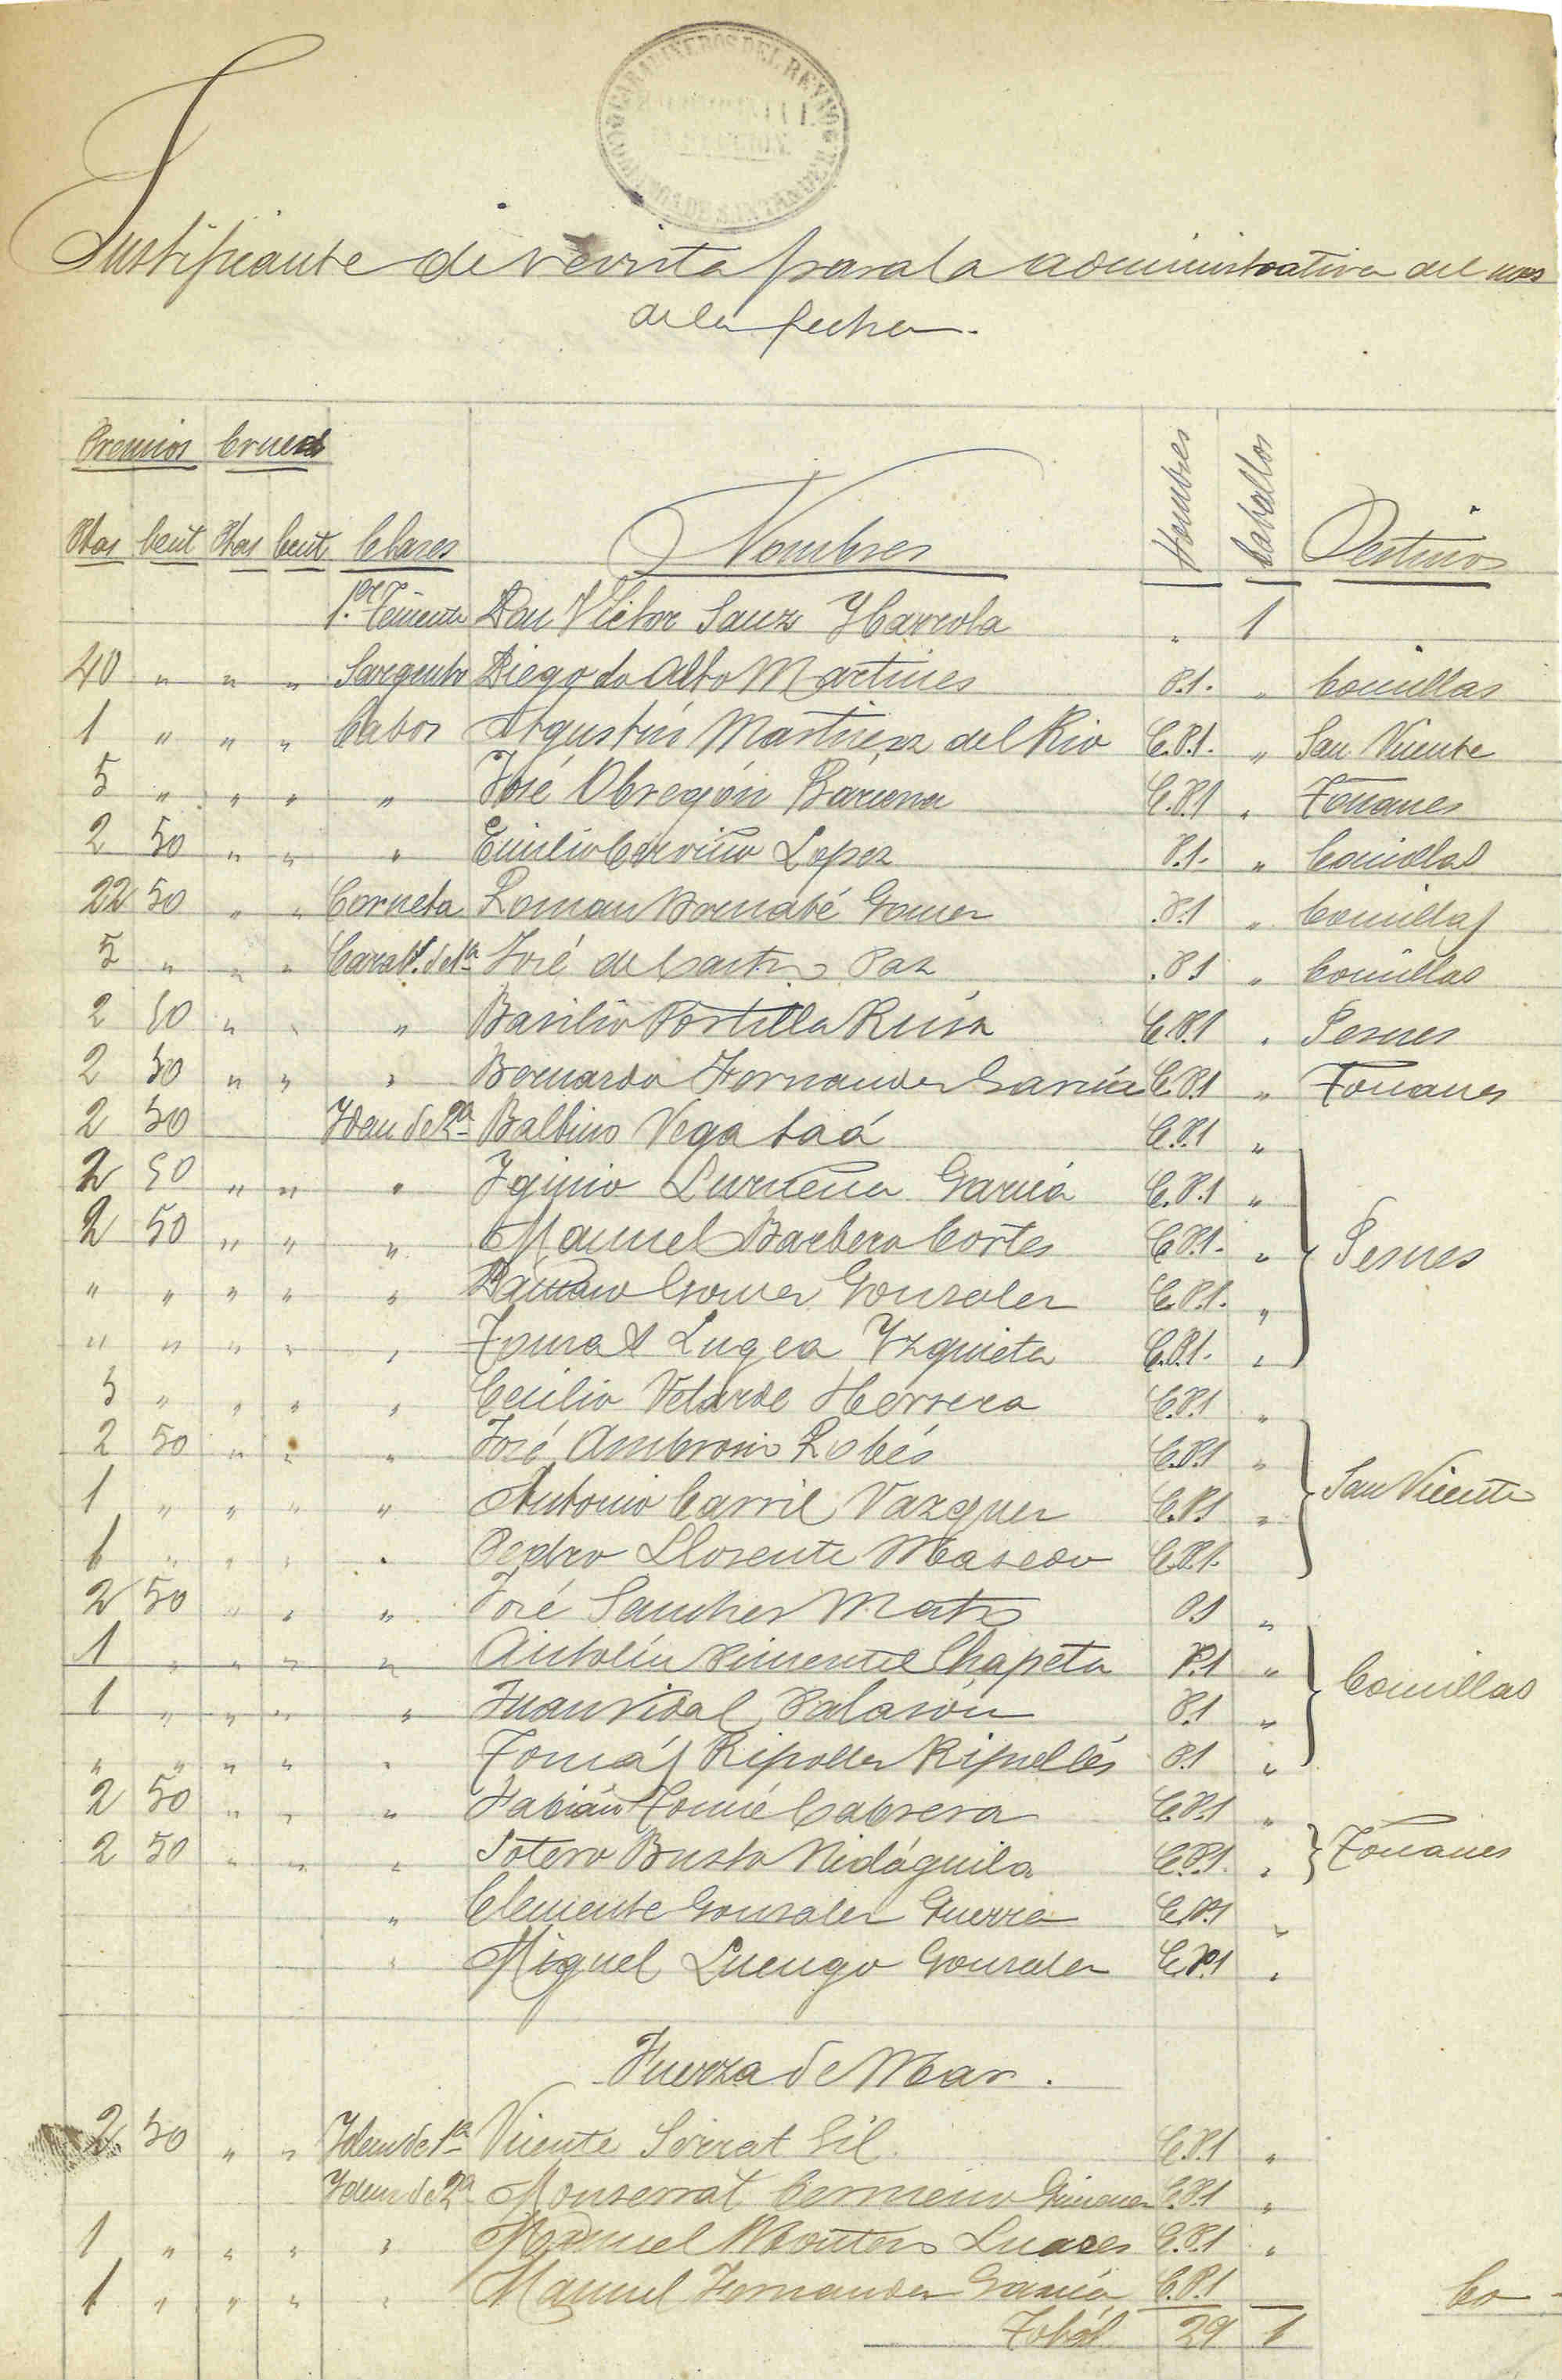 CARABINEROS DEL REYNO
COMANDANCIA DE SANTANDER
Justificante de revista para la administrativa del mes
de la fecha.
Premios Cruces Hombres Caballos
Ptas Cent Ptas Cent Clases Nombres Destinos
1er Teniente Don Victor Sanz Ybarrola " 1
40 " " " Sargento Diego de Alba Martines P.1. " Comillas
1 " " " Cabos Agustín Martinez del Rio C.P.1. " San Vicente
5 " " " " José Obregón Bárcena C.P.1 " Toñanes
2 50 " " " Emilio Cerviño Lopez P.1. " Comillas
22 50 " " Corneta Roman Bernabé Gomez P.1 " Comillas
5 " " " Carab. de 1ª José de Castro Paz P.1 " Comillas
2 50 " " " Basilio Portilla Ruiz C.P.1 " Pesues
2 50 " " " Bernardo Fernandez Garcia C.P.1 " Toñanes
2 50 Idem de 2ª Balbino Vega Saá C.P.1 "
2 50 " " " Yginio Lurueña Garcia C.P.1 "
2 50 " " " Manuel Barbera Cortes C.P.1. " Pesues
" " " " " Gomez Gonzalez C.P.1. "
" " " " " Tomas Lugea Yzquieta C.P.1. "
5 " " " " Cecilio Velarde Herrera C.P.1 "
2 50 " " " José Ambrosio C.P.1 "
1 " " " " Antonio Carril Vazquez C.P.1 " San Vicente
1 " " " " Pedro Llorente Masedo C.P.1.
2 50 " " " José Sanchez Mato P.1 "
1 " " " " Antolín Pimentel Chapeta P.1 " Comillas
1 " " " " Juan Vidal Palasón P.1 "
" " " " " Tomás Ripolles Ripollés P.1 "
2 50 " " " Fabián Tomé Cabrera C.P.1 "
2 50 " " " Sotero Busto Nidáguila C.P.1. " Toñanes
" Clemente Gonzalez Guerra C.P.1 "
" Miguel Luengo Gonzalez C.P.1 "
Fuerza de Mar.
2 50 " " Idem de 1ª Vicente Serrat Gil C.P.1 "
Idem de 2ª Monserrat Cermeño Gimenez C.P.1 "
1 " " " " Manuel Montero Luaces C.P.1 "
1 " " " " Manuel Fernandez Garcia C.P.1
Total 29 1
Co -